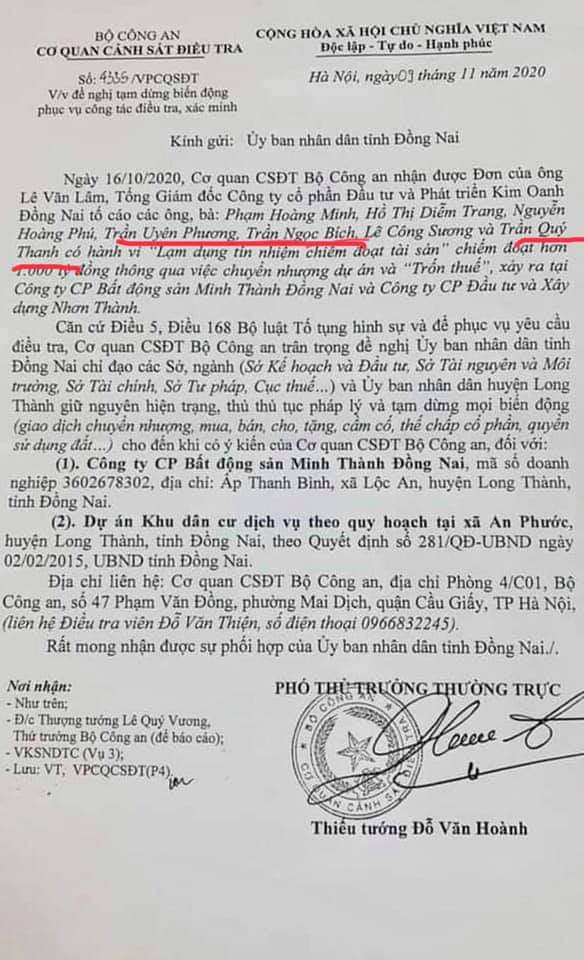 BỘ CÔNG AN
CƠ QUAN CẢNH SÁT ĐIỀU TRA
CỘNG HÒA XÃ HỘI CHỦ NGHĨA VIỆT NAM
Độc lập - Tự do - Hạnh phúc
Số: 4335/VPCQSĐT
V/v đề nghị tạm dừng biến động
phục vụ công tác điều tra, xác minh
Hà Nội, ngày 09 tháng 11 năm 2020
Kính gửi: Ủy ban nhân dân tỉnh Đồng Nai
Ngày 16/10/2020, Cơ quan CSĐT Bộ Công an nhận được Đơn của ông
Lê Văn Lâm, Tổng Giám đốc Công ty cổ phần Đầu tư và Phát triển Kim Oanh
Đồng Nai tố cáo các ông, bà: Phạm Hoàng Minh, Hồ Thị Diễm Trang, Nguyễn
Hoàng Phú, Trần Uyên Phương, Trần Ngọc Bích, Lê Công Sương và Trần Quý
Thanh có hành vi "Lạm dụng tín nhiệm chiếm đoạt tài sản" chiếm đoạt hơn
1.000 tỷ đồng thông qua việc chuyển nhượng dự án và "Trốn thuế", xảy ra tại
Công ty CP Bất động sản Minh Thành Đồng Nai và Công ty CP Đầu tư và Xây
dựng Nhơn Thành.
Căn cứ Điều 5, Điều 168 Bộ luật Tố tụng hình sự và để phục vụ yêu cầu
điều tra, Cơ quan CSĐT Bộ Công an trân trọng đề nghị Ủy ban nhân dân tỉnh
Đồng Nai chỉ đạo các Sở, ngành (Sở Kế hoạch và Đầu tư, Sở Tài nguyên và Môi
trường, Sở Tài chính, Sở Tư pháp, Cục thuế...) và Ủy ban nhân dân huyện Long
Thành giữ nguyên hiện trạng, thủ thủ tục pháp lý và tạm dừng mọi biến động
(giao dịch chuyển nhượng, mua, bán, cho, tặng, cầm cố, thế chấp cổ phần, quyền
sử dụng đất...) cho đến khi có ý kiến của Cơ quan CSĐT Bộ Công an, đối với:
(1). Công ty CP Bất động sản Minh Thành Đồng Nai, mã số doanh
nghiệp 3602678302, địa chỉ: Ấp Thanh Bình, xã Lộc An, huyện Long Thành,
tỉnh Đồng Nai.
(2). Dự án Khu dân cư dịch vụ theo quy hoạch tại xã An Phước,
huyện Long Thành, tỉnh Đồng Nai, theo Quyết định số 281/QĐ-UBND ngày
02/02/2015, UBND tỉnh Đồng Nai.
Địa chỉ liên hệ: Cơ quan CSĐT Bộ Công an, địa chỉ Phòng 4/C01, Bộ
Công an, số 47 Phạm Văn Đồng, phường Mai Dịch, quận Cầu Giấy, TP Hà Nội,
(liên hệ Điều tra viên Đỗ Văn Thiện, số điện thoại 0966832245).
Rất mong nhận được sự phối hợp của Ủy ban nhân dân tỉnh Đồng Nai./.
Nơi nhận:
- Như trên;
- Đ/c Thượng tướng Lê Quý Vương,
Thứ trưởng Bộ Công an (để báo cáo);
- VKSNDTC (Vụ 3);
- Lưu: VT, VPCQSĐT(P4).
PHÓ THỦ TRƯỞNG THƯỜNG TRỰC
BỘ CÔNG AN
CƠ QUAN CẢNH SÁT ĐIỀU TRA
Thiếu tướng Đỗ Văn Hoành